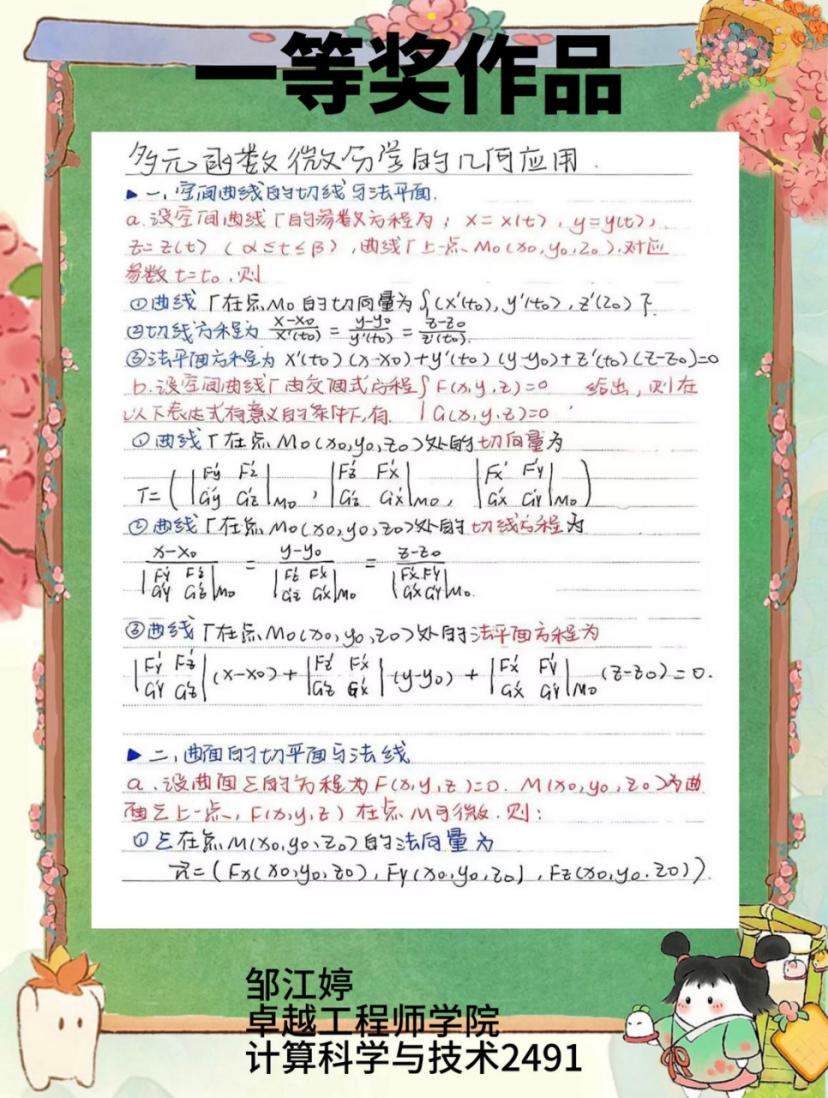 一等奖作品
多元函数微分学的几何应用.
▶一,空间曲线的切线与法平面.
a.设空间曲线Γ的参数方程为; x=x(t), y=y(t),
z=z(t) (α≤t≤β),曲线Γ上一点M₀(x₀,y₀,z₀),对应
参数t=t₀,则
①曲线Γ在点M₀的切向量为{(x'(t₀),y'(t₀),z'(z₀)}.
②切线方程为 (x-x₀)/x'(t₀) = (y-y₀)/y'(t₀) = (z-z₀)/z'(t₀).
③法平面方程为 x'(t₀)(x-x₀)+y'(t₀)(y-y₀)+z'(t₀)(z-z₀)=0
b.设空间曲线Γ由交面式方程{F(x,y,z)=0 给出,则在
以下表达式有意义的条件下,有. G(x,y,z)=0
①曲线Γ在点M₀(x₀,y₀,z₀)处的切向量为
T=(|F'y F'z; G'y G'z|M₀, |F'z F'x; G'z G'x|M₀, |F'x F'y; G'x G'y|M₀)
②曲线Γ在点M₀(x₀,y₀,z₀)处的切线方程为
(x-x₀)/|F'y F'z; G'y G'z|M₀ = (y-y₀)/|F'z F'x; G'z G'x|M₀ = (z-z₀)/|F'x F'y; G'x G'y|M₀.
③曲线Γ在点M₀(x₀,y₀,z₀)处的法平面方程为
|F'y F'z; G'y G'z|(x-x₀)+|F'z F'x; G'z G'x|(y-y₀)+|F'x F'y; G'x G'y|M₀(z-z₀)=0.
▶二,曲面的切平面与法线
a.设曲面Σ的方程为F(x,y,z)=0. M(x₀,y₀,z₀)为曲
面Σ上一点,F(x,y,z)在点M可微.则:
①Σ在点M(x₀,y₀,z₀)的法向量为
n⃗=(Fx(x₀,y₀,z₀),Fy(x₀,y₀,z₀),Fz(x₀,y₀,z₀)).
邹江婷
卓越工程师学院
计算科学与技术2491